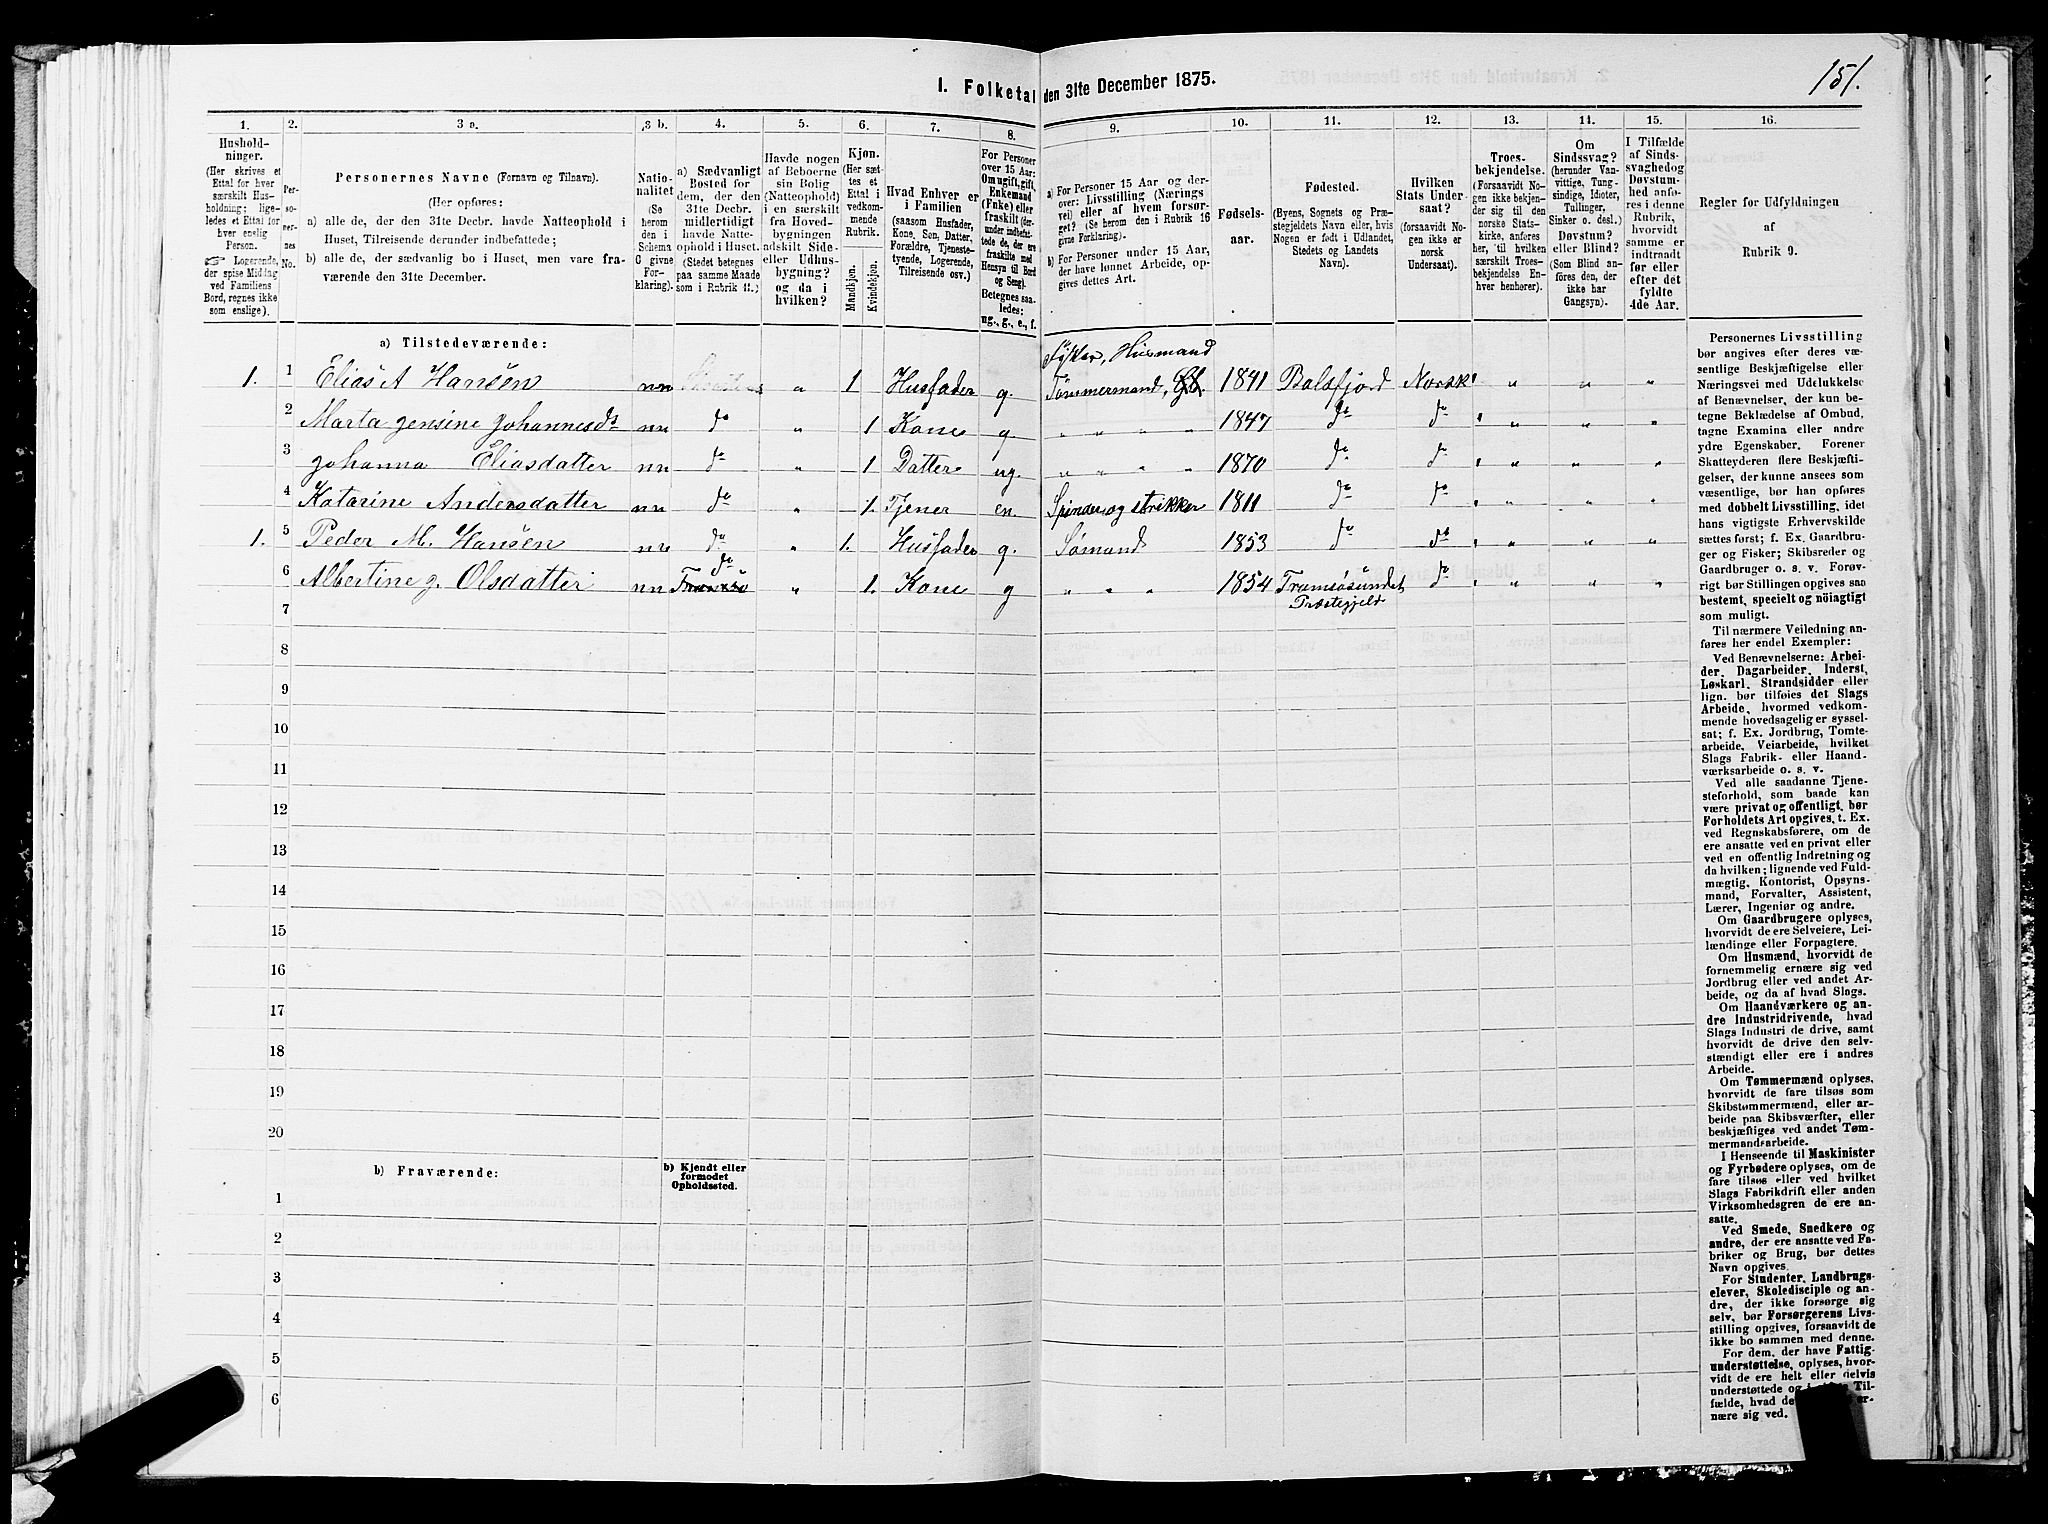 I. Folketal den 31te December 1875.
151.
1.
2.
3 a.
3 b.
4.
5.
6.
7.
8.
9.
10.
11.
12.
13.
14.
15.
16.
Hushold-
ninger.
(Her skrives et
Ettal for hver
særskilt Hus-
holdning; lige-
ledes et Ettal for
hver enslig
Person.
☞ Logerende,
der spise Middag
ved Familiens
Bord, regnes ikke
som enslige).
Per-
so-
ner-
nes
No.
Personernes Navne (Fornavn og Tilnavn).
(Her opføres:
a) alle de, der den 31te Decbr. havde Natteophold i
Huset, Tilreisende derunder indbefattede;
b) alle de, der sædvanlig bo i Huset, men vare fra-
værende den 31te December.
Natio-
nalitet
(Se
herom
den i
Schema
G givne
For-
klaring).
a) Sædvanligt
Bosted for
dem, der den
31te Decbr.
midlertidigt
havde Natte-
ophold i Huset.
(Stedet betegnes
paa samme Maade
som i Rubrik 11.)
Havde nogen
af Beboerne
sin Bolig
(Natteophold)
i en særskilt
fra Hoved-
bygningen
adskilt Side-
eller Udhus-
bygning?
og da i
hvilken?
Kjøn.
(Her sæt-
tes et
Ettal i
vedkom-
mende
Rubrik.
Mandkjøn.
Kvindekjøn.
Hvad Enhver er
i Familien
(saasom Husfader,
Kone, Søn, Datter,
Forældre, Tjeneste-
tyende, Logerende,
Tilreisende osv.)
For Personer
over 15 Aar:
Om ugift, gift,
Enkemand
(Enke) eller
fraskilt (der-
under indbefat-
tede de, der ere
fraskilte med
Hensyn til Bord
og Seng).
Betegnes saa-
ledes:
ug., g., e., f.
a) For Personer 15 Aar og der-
over: Livsstilling (Nærings-
vei) eller af hvem forsør-
get? (Se herom den i Rubrik 16
givne Forklaring).
b) For Personer under 15 Aar,
der have lønnet Arbeide, op-
gives dettes Art.
Fødsels-
aar.
Fødested.
(Byens, Sognets og Præ-
stegjeldets Navn eller, hvis
Nogen er født i Udlandet,
Stedets og Landets
Navn).
Hvilken
Stats Under-
saat?
(forsaavidt No-
gen ikke er
norsk
Undersaat).
Troes-
bekjendelse.
(Forsaavidt No-
gen ikke bekjen-
der sig til den
norske Stats-
kirke, anføres
her, til hvilken
særskilt Troes-
bekjendelse En-
hver henhører).
Om
Sindssvag?
(herunder Van-
vittige, Tung-
sindige, Idioter,
Tullinger,
Sinker o. desl.)
Døvstum?
eller Blind?
(Som Blind an-
føres den, der
ikke har
Gangsyn).
I Tilfælde
af Sinds-
svaghed og
Døvstum-
hed anfø-
res i denne
Rubrik,
hvorvidt
samme er
indtraadt
før eller
efter det
fyldte
4de Aar.
Regler for Udfyldningen
af
Rubrik 9.
a) Tilstedeværende:
Husmand
1. 1 Elias A Hansen nn " 1 Husfader g. Tømmermand, 1841 Balsfjord Norsk " " "
2 Marta Jensine Johannesdt nn do " 1 Kone g. " " " " 1847 do do " " "
3 Johanna Eliasdatter nn do " 1 Datter ug. " " " " 1870 do do " " "
4 Katarine Andersdatter nn do " 1. Tjener en. Spinder og strikker 1811 do do " " "
1. 5 Peder M. Hansen nn do " 1. Husfader g. Sømand 1853 do do " " "
do
6 Albertine J. Olsdatter nn Tromsö " 1. Kone g " " " 1854 Tromsösundet do " " "
Præstegjeld
7
8
9
10
11
12
13
14
15
16
17
18
19
20
b) Fraværende:
b) Kjendt eller
formodet
Opholdssted.
1
2
3
4
5
6
Personernes Livsstilling
bør angives efter deres væ-
sentlige Beskjæftigelse eller
Næringsvei med Udelukkelse
af Benævnelser, der kun be-
tegne Beklædelse af Ombud,
tagne Examina eller andre
ydre Egenskaber. Forener
Skatteyderen flere Beskjæfti-
gelser, der kunne ansees som
væsentlige, bør han opføres
med dobbelt Livsstilling, idet
hans vigtigste Erhvervskilde
sættes først; f. Ex. Gaardbru-
ger og Fisker; Skibsreder og
Gaardbruger o. s. v. Forøv-
rigt bør Stillingen opgives saa
bestemt, specielt og nöiagtigt
som muligt.
Til nærmere Veiledning an-
føres her endel Exempler:
Ved Benævnelserne: Arbei-
der, Dagarbeider, Inderst,
Løskarl, Strandsidder eller
lign. bør tilføies det Slags
Arbeide, hvormed vedkom-
mende hovedsagelig er syssel-
sat; f. Ex. Jordbrug, Tomte-
arbeide, Veiarbeide, hvilket
Slags Fabrik- eller Haand-
værksarbeide o. s. v.
Ved alle saadanne Tjene-
steforhold, som baade kan
være privat og offentligt, bør
Forholdets Art opgives, t. Ex.
ved Regnskabsførere, om de
ere ansatte ved en privat eller
ved en offentlig Indretning og
da hvilken; lignende ved Fuld-
mægtig, Kontorist, Opsyns-
mand, Forvalter, Assistent,
Lærer, Ingeniør og andre.
Om Gaardbrugere oplyses,
hvorvidt de ere Selveiere, Lei-
lændinge eller Forpagtere.
Om Husmænd, hvorvidt de
fornemmelig ernære sig ved
Jordbrug eller ved andet Ar-
beide, og da af hvad Slags.
Om Haandværkere og an-
dre Industridrivende, hvad
Slags Industri de drive, samt
hvorvidt de drive den selv-
stændigt eller ere i andres
Arbeide.
Om Tømmermænd oplyses,
hvorvidt de fare tilsøs som
Skibstømmermænd, eller ar-
beide paa Skibsværfter, eller
beskjæftiges ved andet Tøm-
mermandsarbeide.
I Henseende til Maskinister
og Fyrbødere oplyses, om de
fare tilsøs eller ved hvilket
Slags Fabrikdrift eller anden
Virksomhedsgren de ere an-
satte.
Ved Smede, Snedkere og
andre, der ere ansatte ved Fa-
briker og Brug, bør dettes
Navn opgives.
For Studenter, Landbrugs-
elever, Skoledisciple og an-
dre, der ikke forsørge sig
selv, bør Forsørgerens Livs-
stilling opgives, forsaavidt de
ikke bo sammen med denne.
For dem, der have Fattig-
understøttelse, oplyses, hvor-
vidt de ere helt eller delvis
understøttede og Til-
fælde, hvad de er-
nære sig ved.